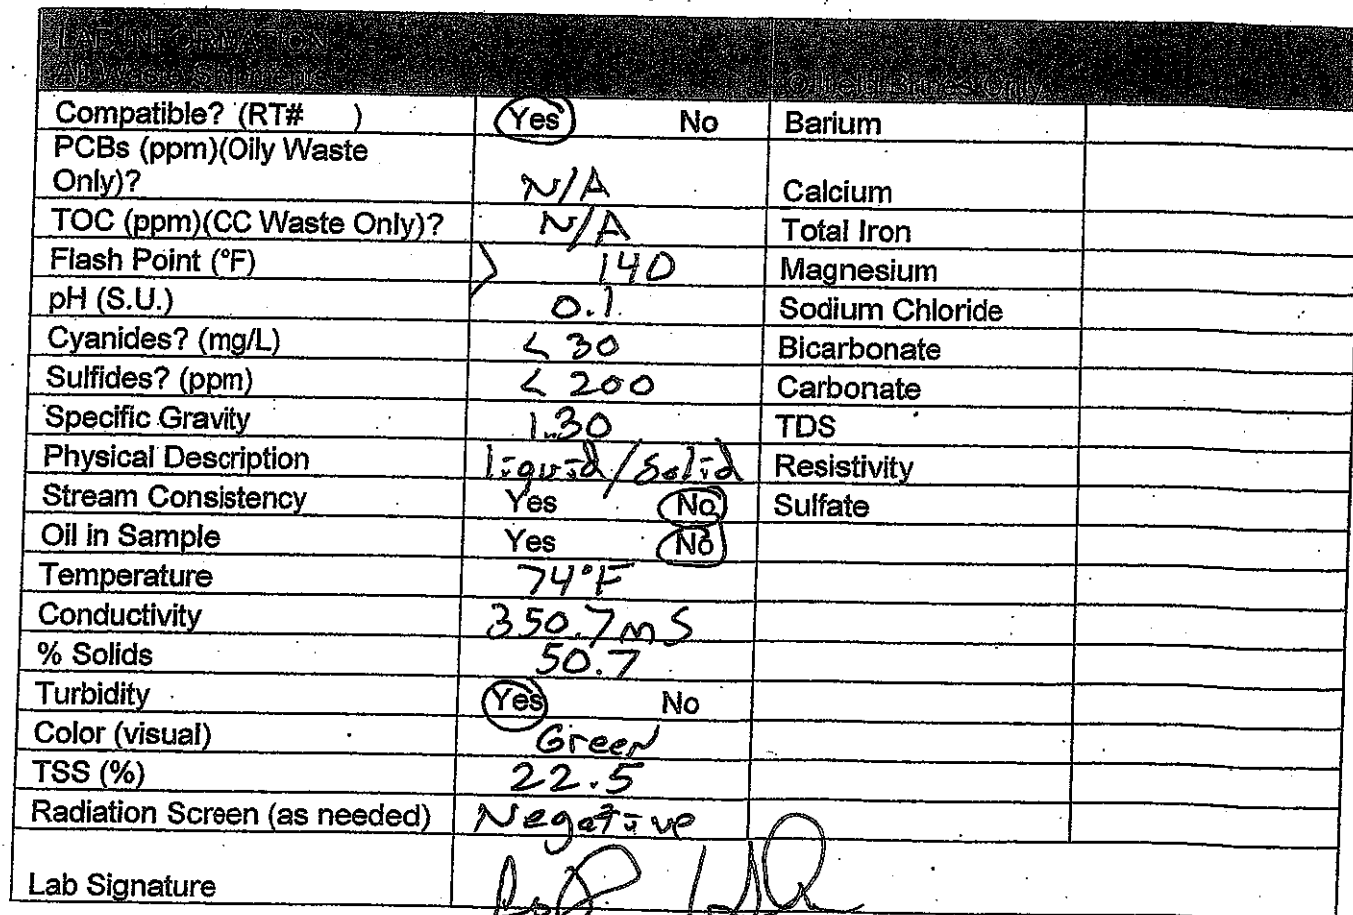 LAB INFORMATION
All Waste Shipments
Oilfield Brines Only
Compatible? (RT# ) Yes No Barium
PCBs (ppm)(Oily Waste
Only)? N/A Calcium
TOC (ppm)(CC Waste Only)? N/A Total Iron
Flash Point (°F) > 140 Magnesium
pH (S.U.) 0.1 Sodium Chloride
Cyanides? (mg/L) < 30 Bicarbonate
Sulfides? (ppm) < 200 Carbonate
Specific Gravity 1.30 TDS
Physical Description liquid/solid Resistivity
Stream Consistency Yes No Sulfate
Oil in Sample Yes No
Temperature 74°F
Conductivity 350.7 mS
% Solids 50.7
Turbidity Yes No
Color (visual) Green
TSS (%) 22.5
Radiation Screen (as needed) Negative
Lab Signature